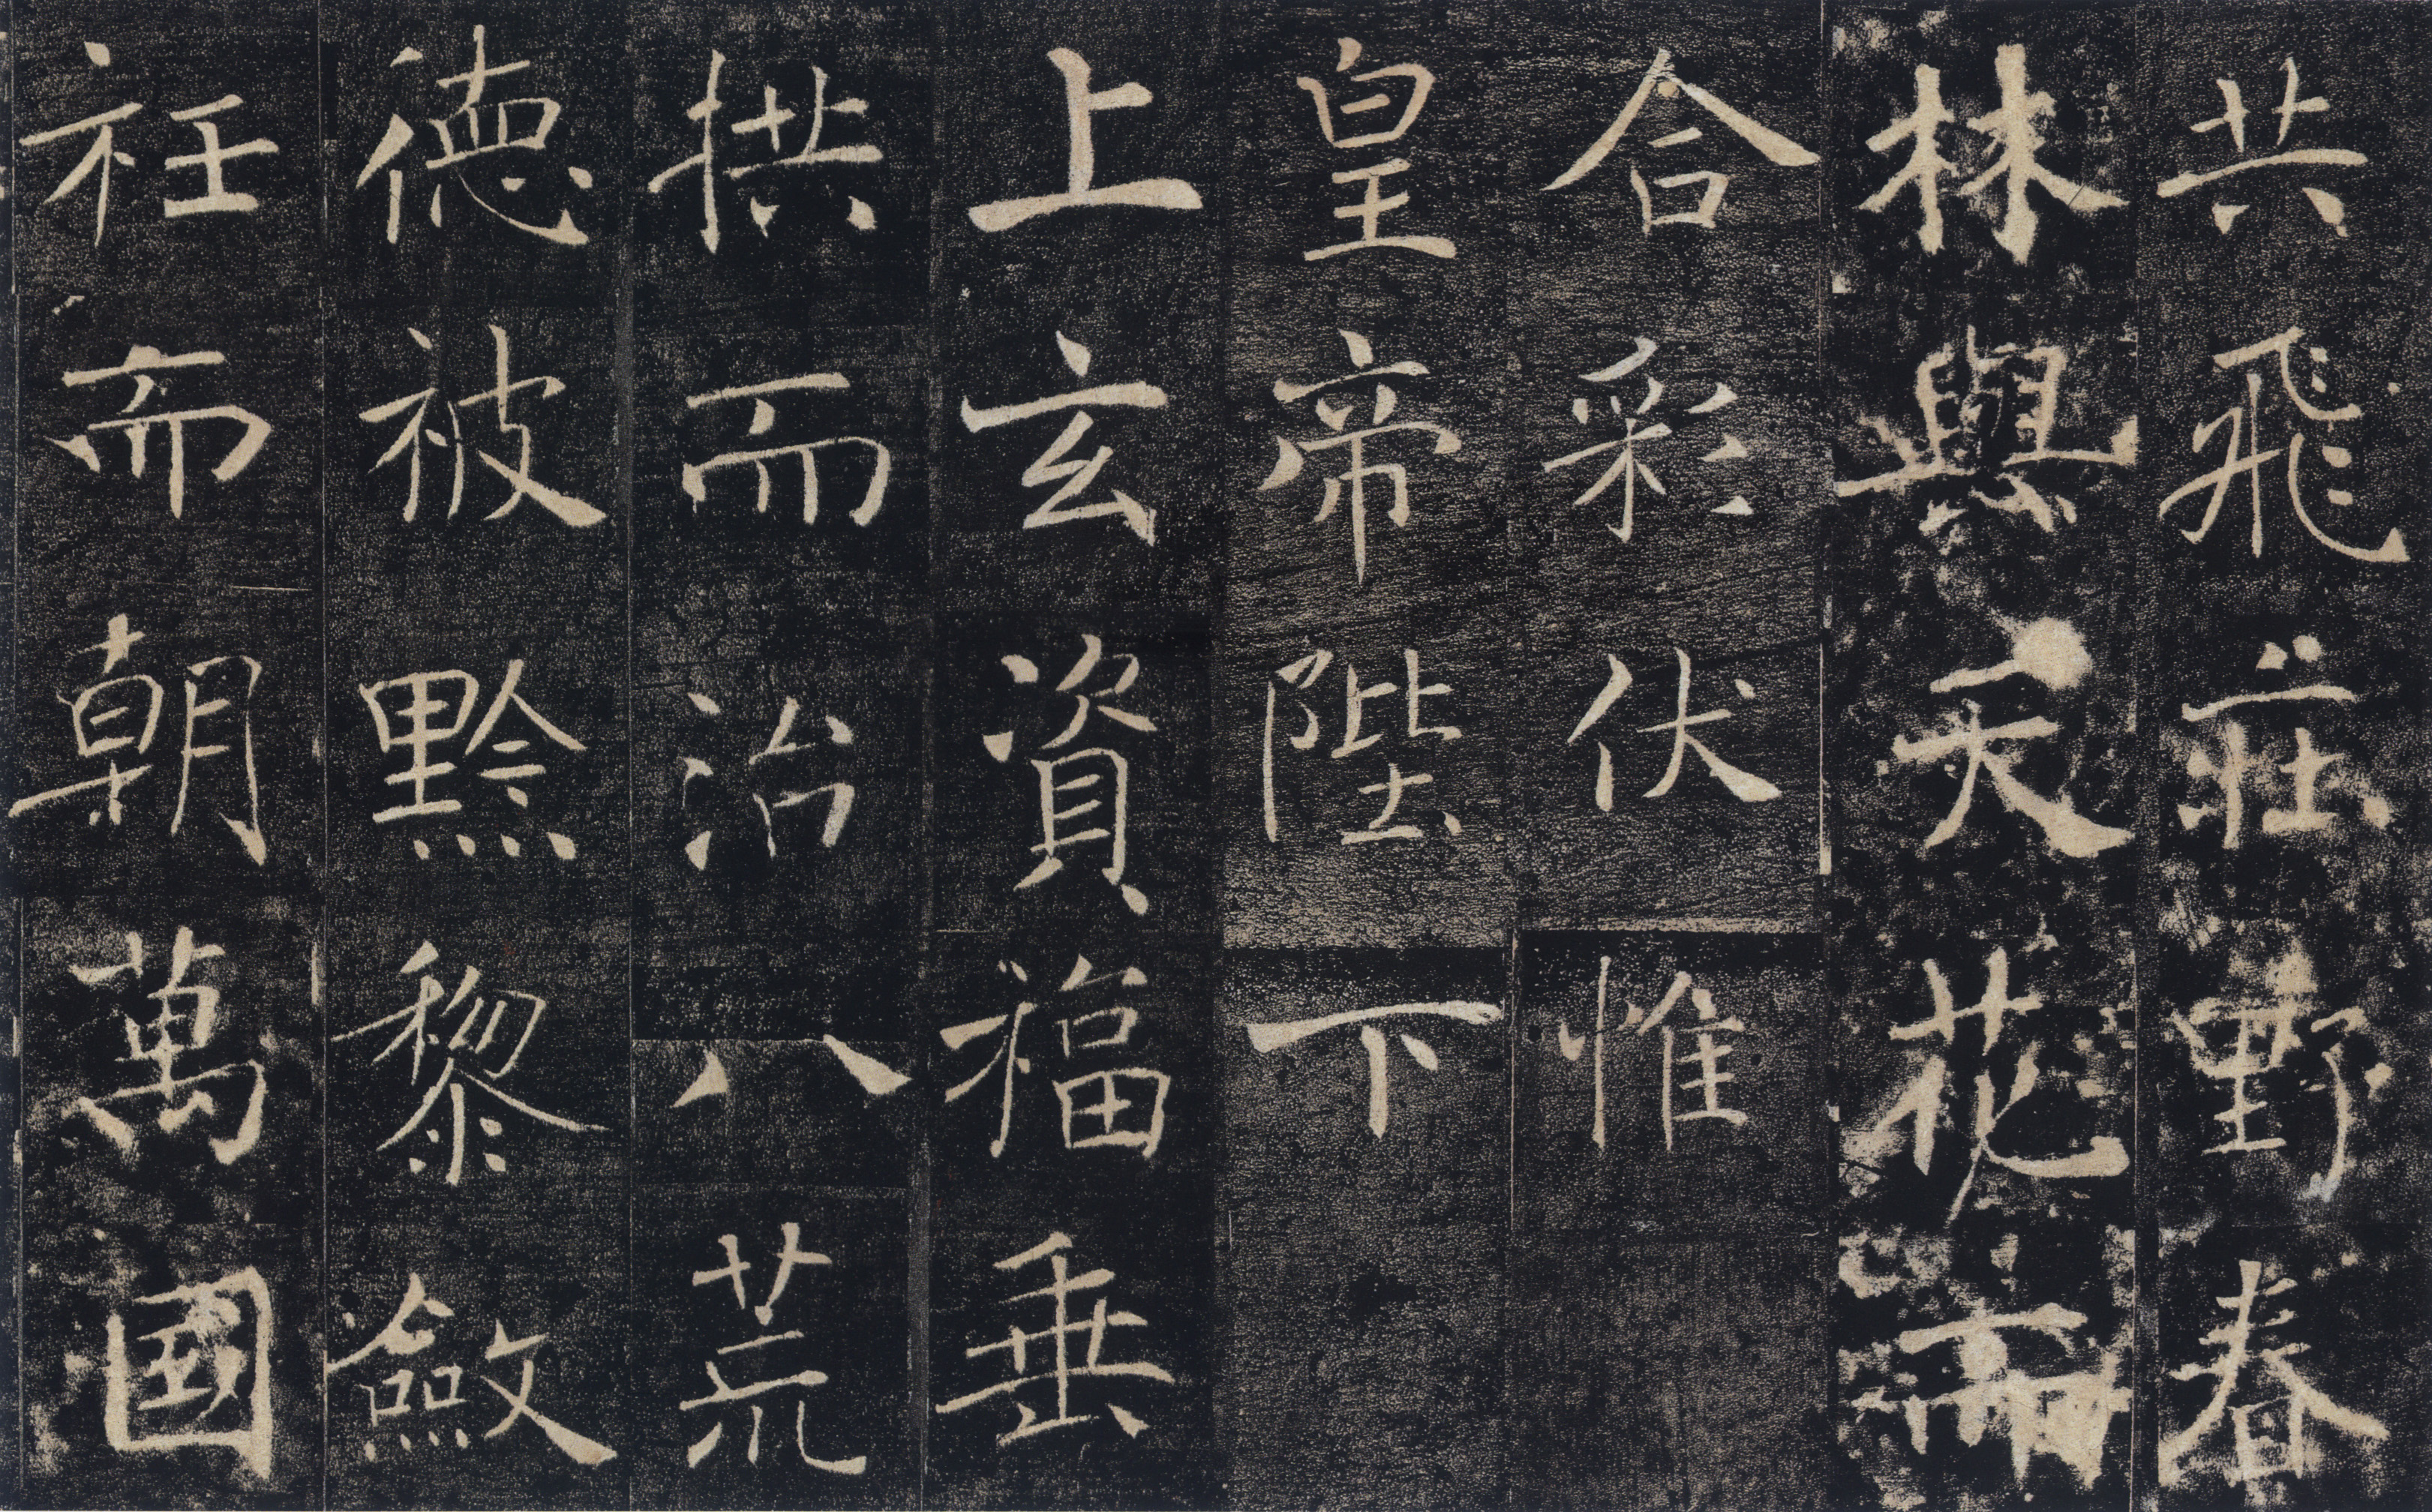 共飛莊野春
林與天花而
合彩伏惟
皇帝陛下
上玄資福垂
拱而治八荒
德被黔黎斂
衽而朝萬國